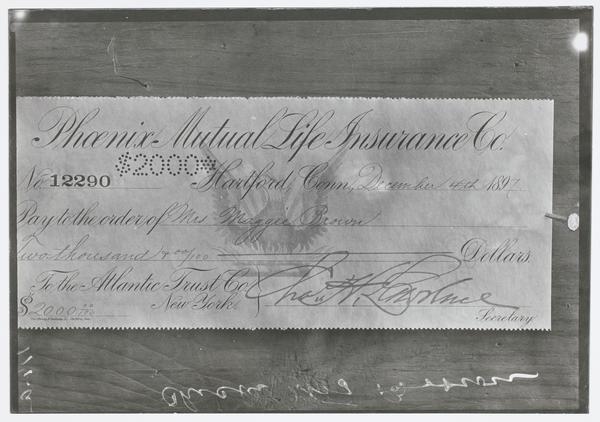 Phœnix Mutual Life Insurance Co.
$2000$
No. 12290 Hartford, Conn, December 4th 1897
Pay to the order of Mrs Maggie Brown
Two thousand & 00/100 Dollars
To the Atlantic Trust Co.
New York.
$2000 00/100 Secretary